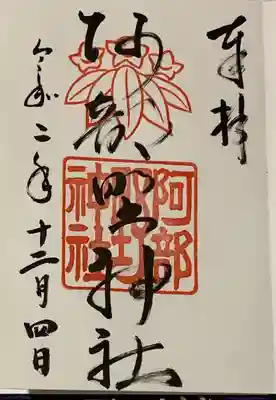 奉拝
阿部野神社
令和二年十二月四日
阿部野神社